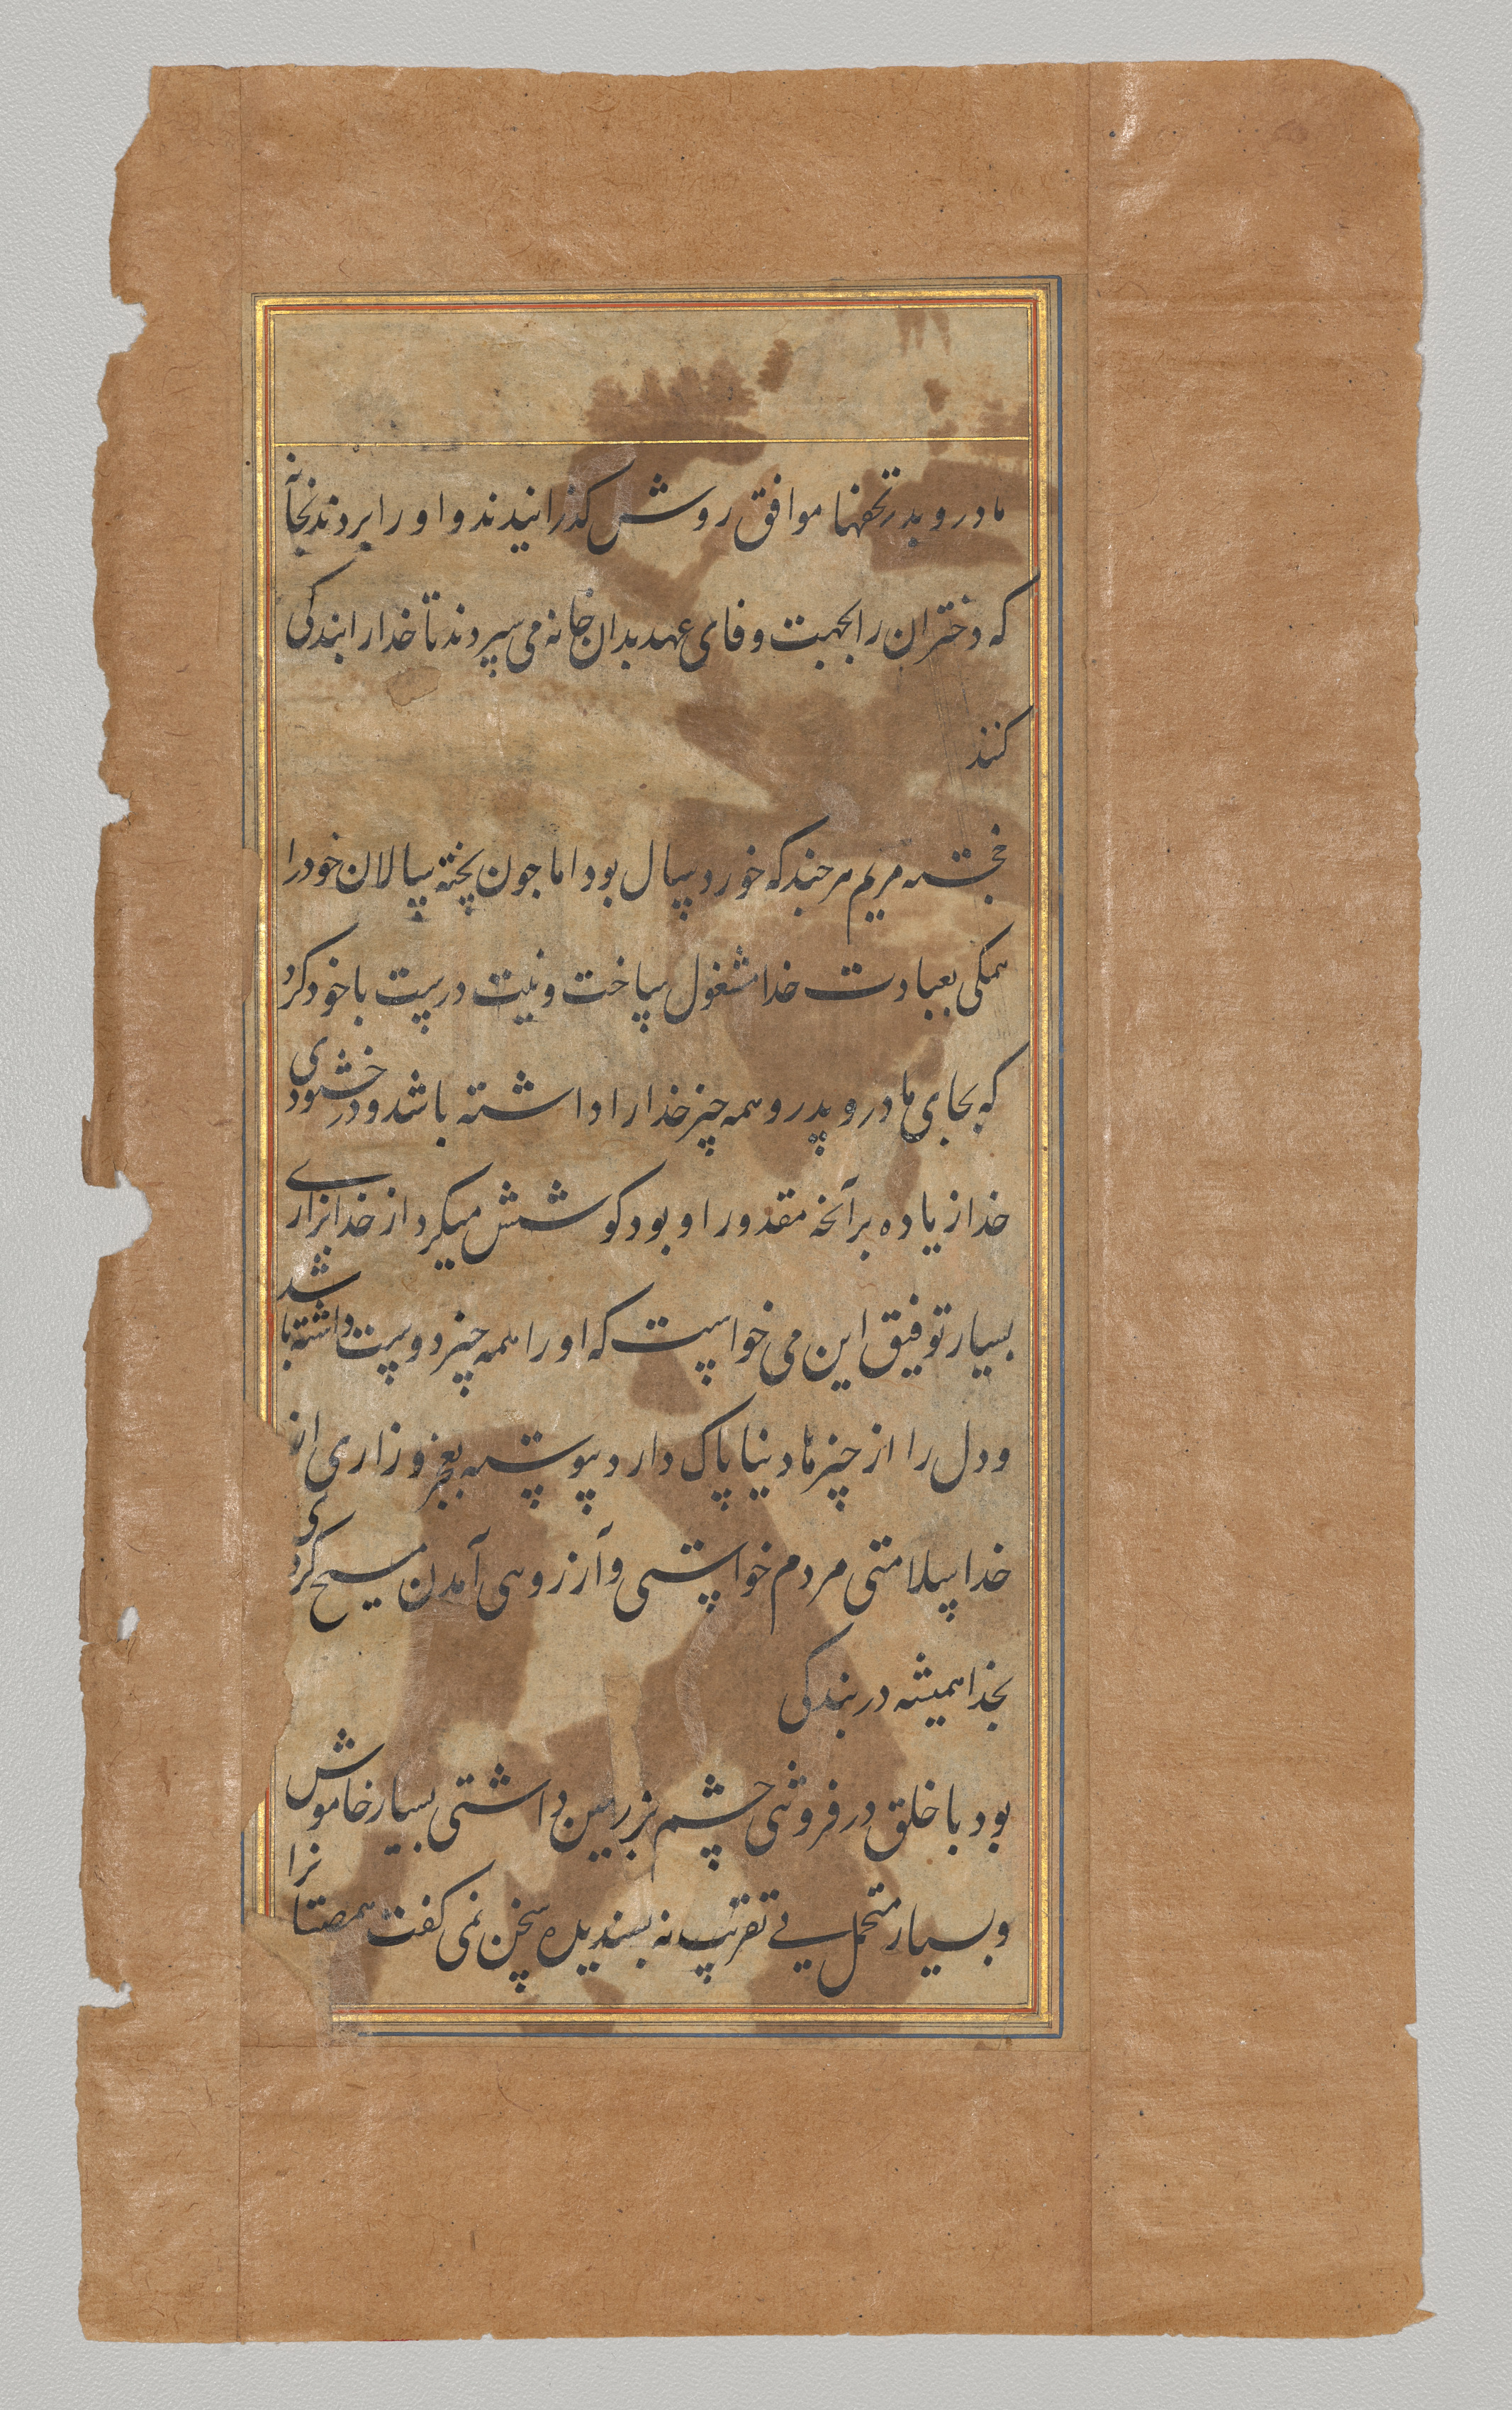 مادر و پدر تحفها موافق روش كذرانیدند و او را بردند بخانهٔ
كه دختران را بجهت وفای عهد بدان خانه می سپردند تا خدا را بندكی
كنند
خجسته مریم هر چند كه خورد سال بود اما چون پخته سالان خود را
همكی بعبادت خدا مشغول ساخت و نیت درست با خود كرد
كه بجای مادر و پدر و همه چیز خدا را داشته باشد و در خشنودی
خدا زیاده بر آنچه مقدور او بود كوشش میكرد از خدا بزاری
بسیار توفیق این می خواست كه او را همه چیز دوست داشته باشد
و دل را از چیزها دنیا پاک دارد پیوسته بعجز و زاری از
خدا سلامتی مردم خواستی و آرزوی آمدن مسیح كردی
بخدا همیشه در بندكی
بود با خلق در فروتنی چشم بر زمین داشتی بسیار خاموش
و بسیار متحمل بی تقریب نه پسندیده سخن نمی كفت همصحبتانرا